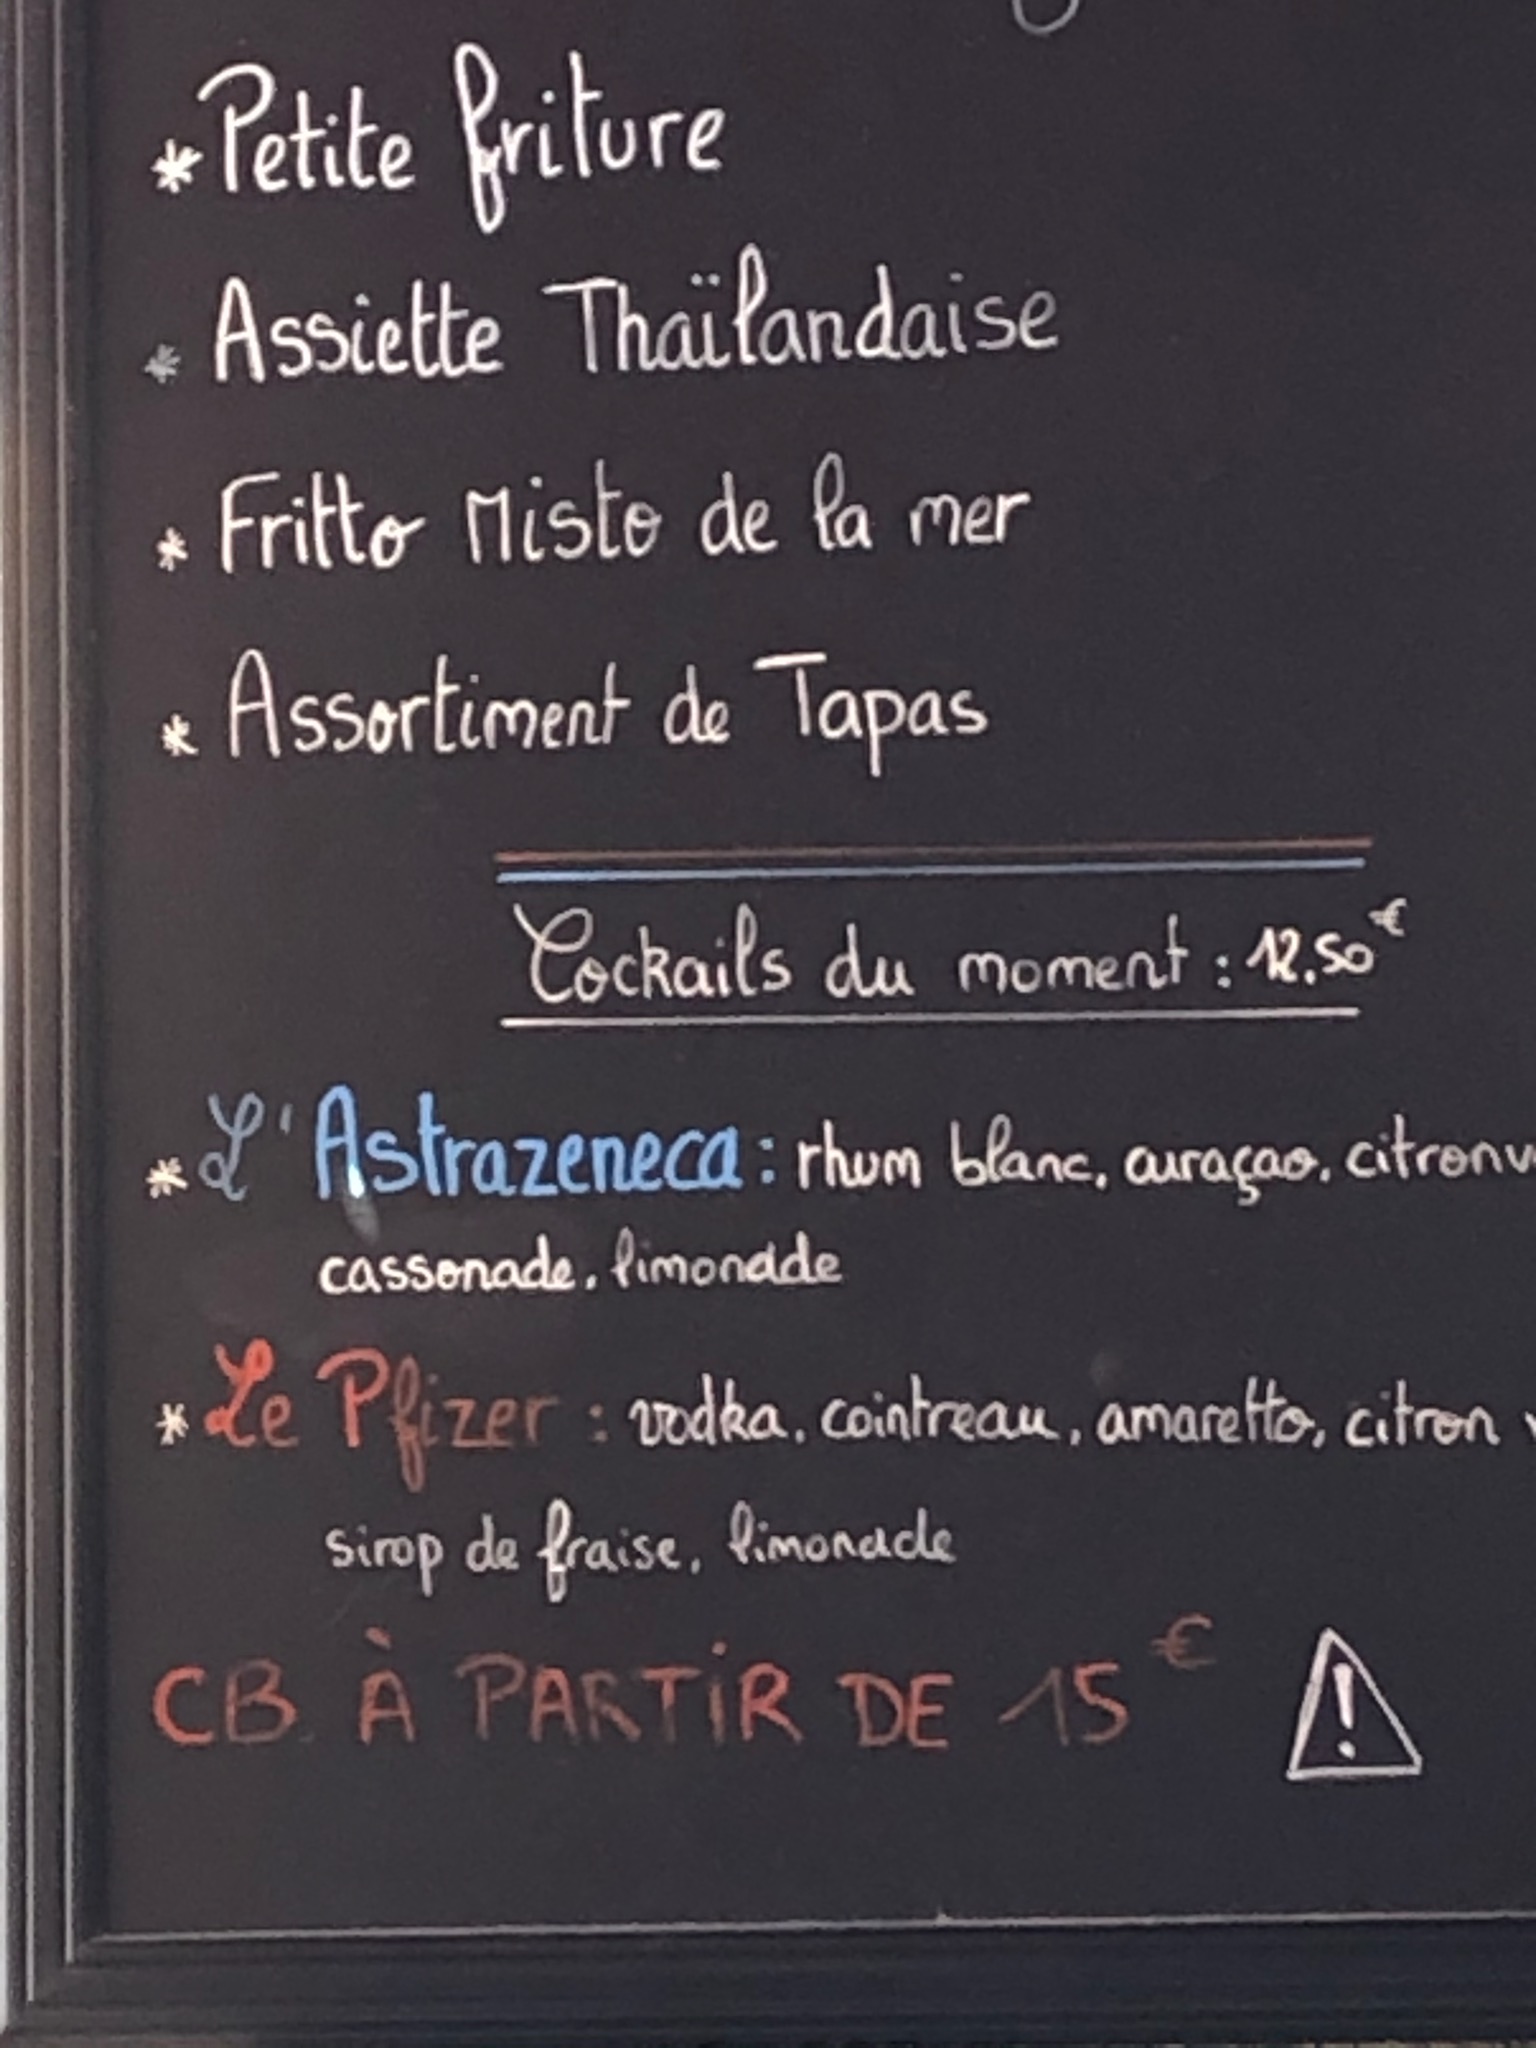 * Petite friture
* Assiette Thaïlandaise
* Fritto Misto de la mer
* Assortiment de Tapas
Cockails du moment : 12.50€
* L'Astrazeneca : rhum blanc, curaçao, citron
cassonade, limonade
* Le Pfizer : vodka, cointreau, amaretto, citron
sirop de fraise, limonade
CB À PARTIR DE 15€